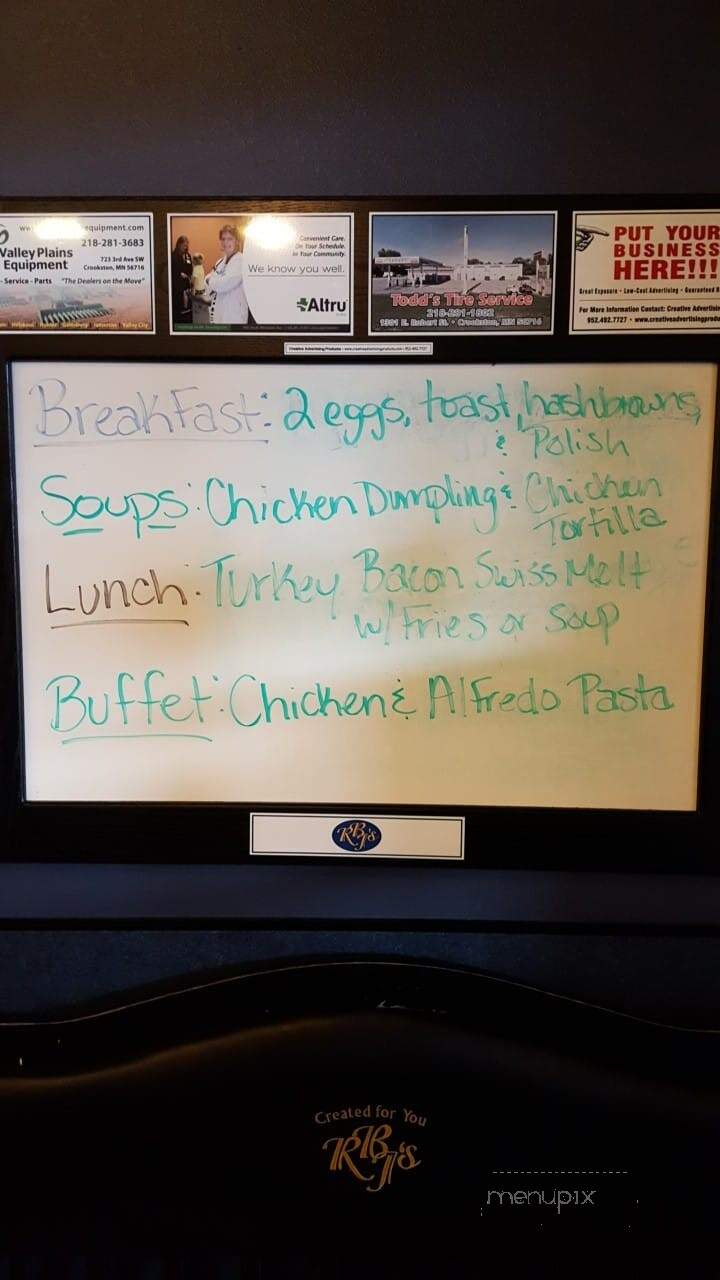 equipment.com
218-281-3683
Valley Plains
Equipment
723 3rd Ave SW
Crookston, MN 56716
- Service - Parts "The Dealers on the Move"
Convenient Care.
On Your Schedule.
In Your Community.
We know you well.
Altru
Todd's Tire Service
218-281-1802
1331 E. Robert St. • Crookston, MN 56716
PUT YOUR
BUSINESS
HERE!!!
Great Exposure • Low-Cost Advertising • Guaranteed
For More Information Contact: Creative Advertising
952.492.7727 • www.creativeadvertisingprodu
Creative Advertising Products - www.creativeadvertisingproducts.com - 952.492.7727
Breakfast: 2 eggs, toast, hashbrowns,
& Polish
Soups: Chicken Dumpling & Chicken
Tortilla
Lunch: Turkey Bacon Swiss Melt
w/ Fries or Soup
Buffet: Chicken & Alfredo Pasta
RBJ's
Created for You
RBJ's
menupix